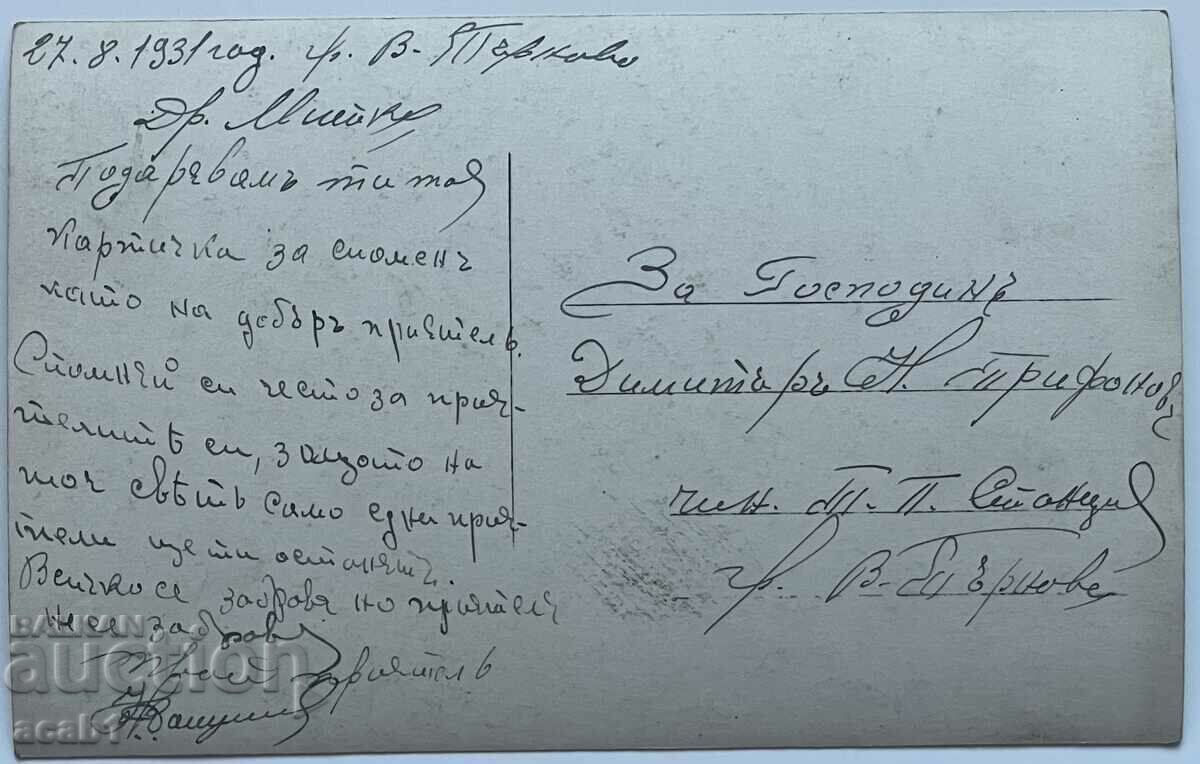 27.8.1931 год. гр. В-Търново
Др. Митке
Подарявамъ ти тая
картичка за споменъ
като на добъръ приятель.
Спомняй си често за прия-
телитѣ си, защото на
тоя свѣтъ само едни прия-
тели ще ти останатъ.
Всичко се забравя но приятель
не се забравя
твой приятель
За Господинъ
Димитъръ Н. Трифоновъ
чин. Т. П. Станция
гр. В-Търново
BALKAN
auction
acab1